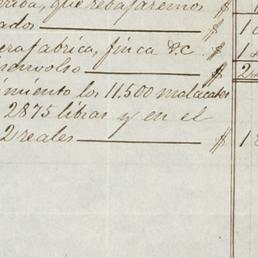 erida, que rebajaremos $
ado $ 1
era fabrica, finca &c. $ 1
senvolso $ 2
imiento los 11.500 malacates
2875 libras y en el
2 reales $ 1